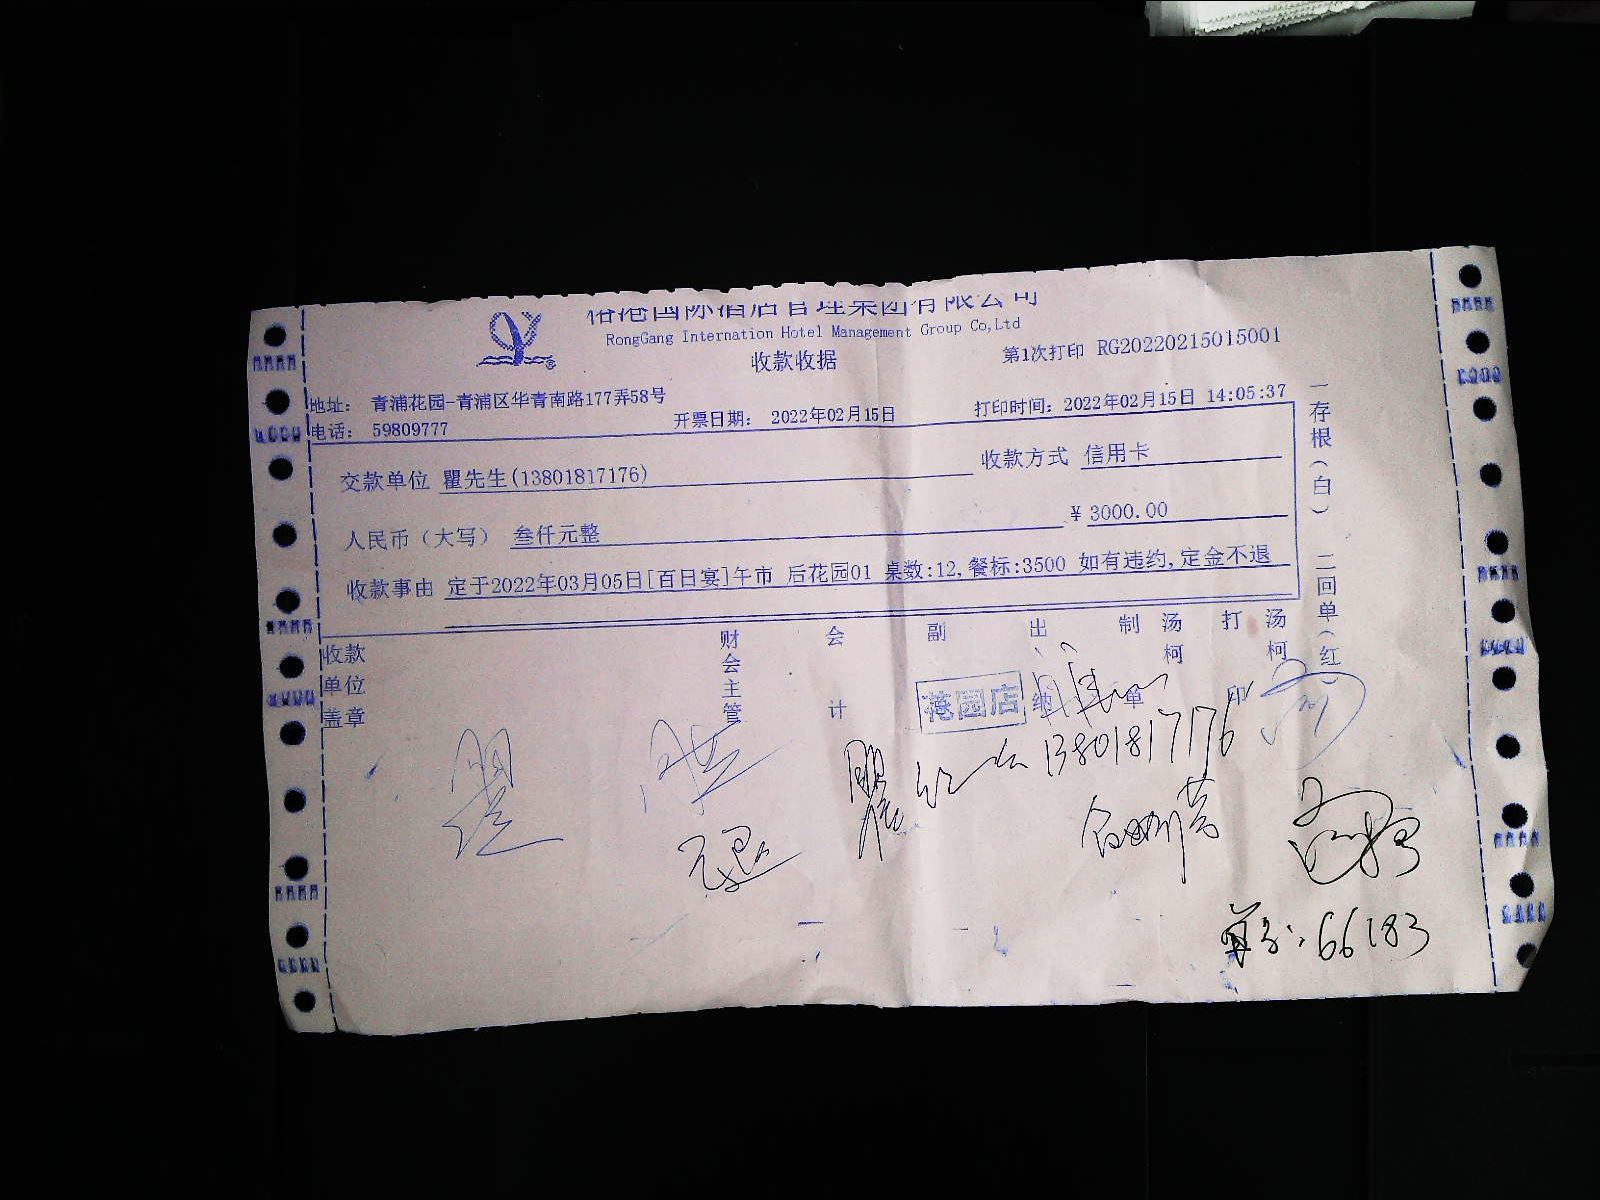 港国际酒店管理集团有限公司
RongGang Internation Hotel Management Group Co,Ltd
收款收据
第1次打印 RG20220215015001
地址： 青浦花园-青浦区华青南路177弄58号
电话： 59809777
开票日期： 2022年02月15日
打印时间：2022年02月15日 14:05:37
交款单位 瞿先生(13801817176)
收款方式 信用卡
人民币（大写） 叁仟元整
¥ 3000.00
收款事由 定于2022年03月05日[百日宴]午市 后花园01 桌数:12,餐标:3500 如有违约,定金不退
一存根(白) 二回单(红)
收款单位盖章
财会主管
会计
副
出纳
制单
汤柯
打印
汤柯
花园店
瞿
13801817176
66183